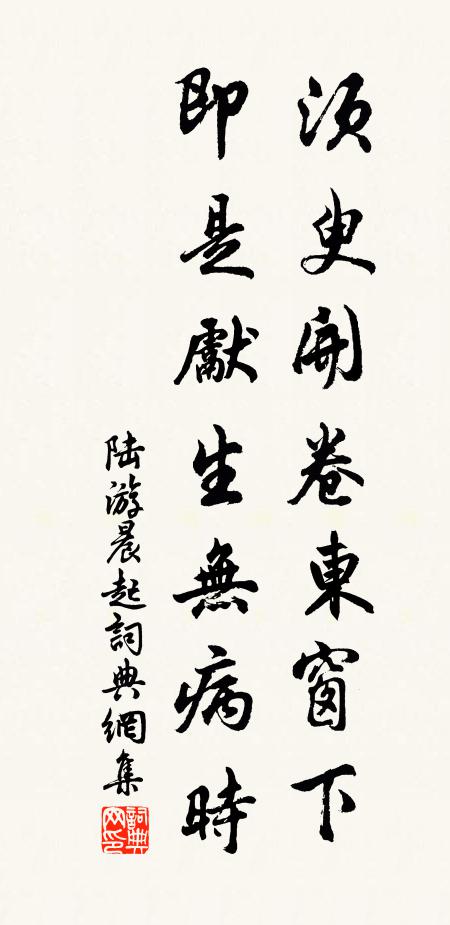 須臾開卷東窗下
即是獻生無病時
陸游晨起詞典網集
詞典网印